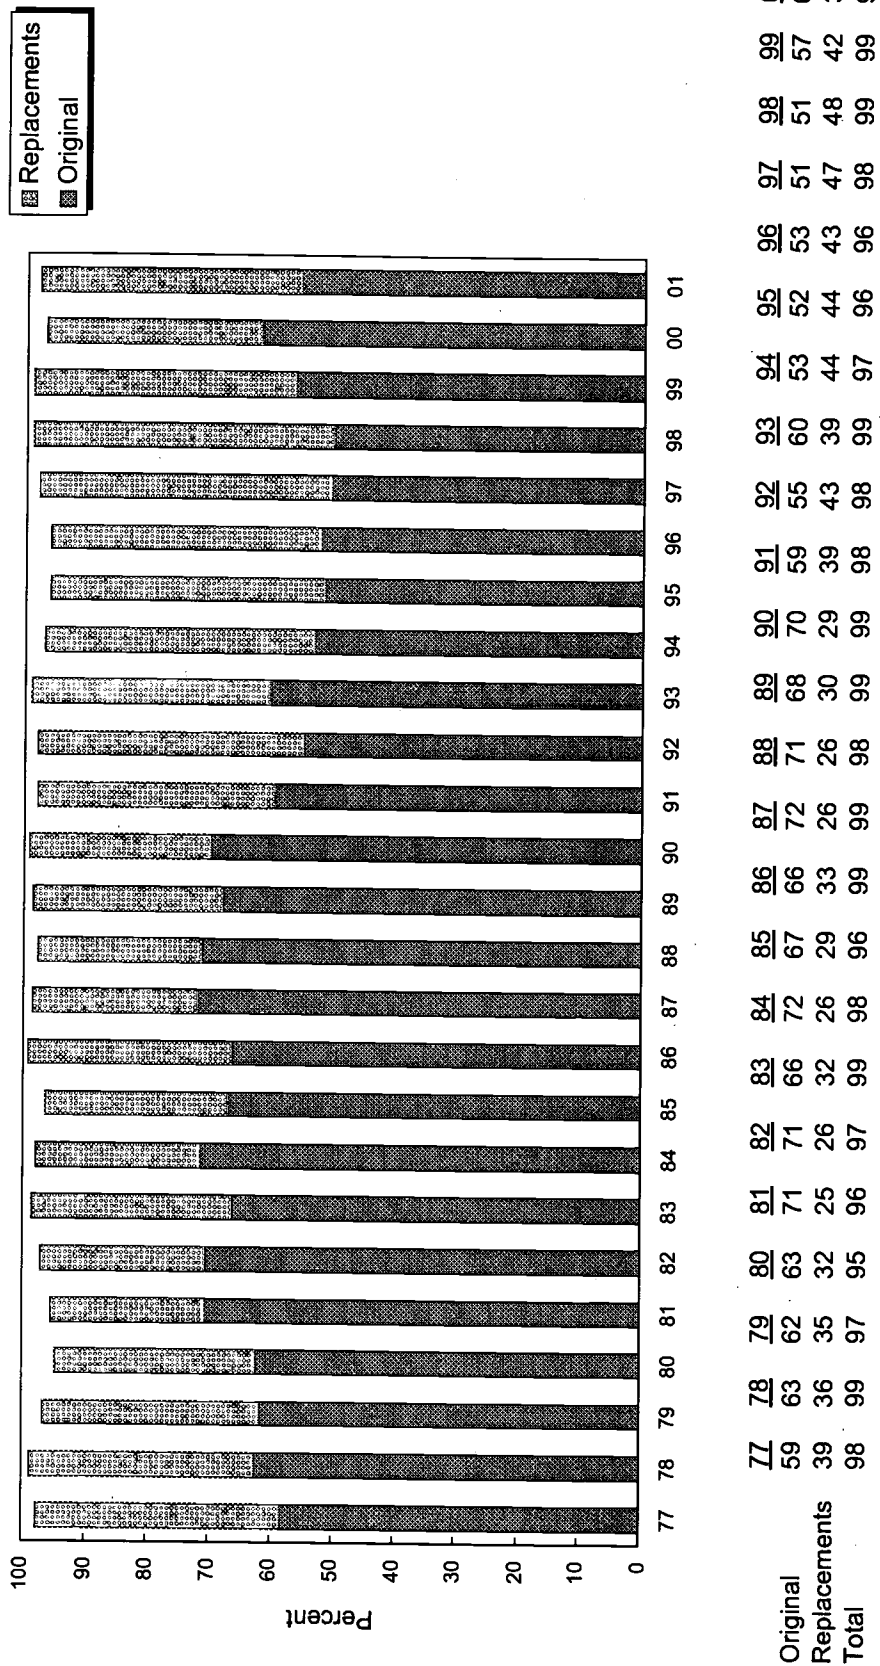 Replacements
Original
100
90
80
70
60
50
40
30
20
10
0
Percent
77 78 79 80 81 82 83 84 85 86 87 88 89 90 91 92 93 94 95 96 97 98 99 00 01
77 78 79 80 81 82 83 84 85 86 87 88 89 90 91 92 93 94 95 96 97 98 99
Original 59 63 62 63 71 71 66 72 67 66 72 71 68 70 59 55 60 53 52 53 51 51 57
Replacements 39 36 35 32 25 26 32 26 29 33 26 26 30 29 39 43 39 44 44 43 47 48 42
Total 98 99 97 95 96 97 99 98 96 99 99 98 99 99 98 98 99 97 96 96 98 99 99